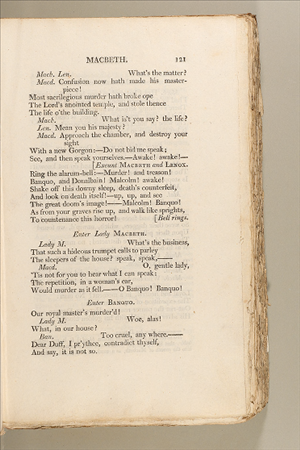 MACBETH. 121
Macb. Len. What's the matter?
Macd. Confusion now hath made his master-
piece!
Most sacrilegious murder hath broke ope
The Lord's anointed temple, and stole thence
The life o'the building.
Macb. What is't you say? the life?
Len. Mean you his majesty?
Macd. Approach the chamber, and destroy your
sight
With a new Gorgon:—Do not bid me speak;
See, and then speak yourselves.—Awake! awake!—
[Exeunt MACBETH and LENOX.
Ring the alarum-bell:—Murder! and treason!
Banquo, and Donalbain! Malcolm! awake!
Shake off this downy sleep, death's counterfeit,
And look on death itself!—up, up, and see
The great doom's image!——Malcolm! Banquo!
As from your graves rise up, and walk like sprights,
To countenance this horror! [Bell rings.
Enter Lady MACBETH.
Lady M. What's the business,
That such a hideous trumpet calls to parley
The sleepers of the house? speak, speak,——
Macd. O, gentle lady,
'Tis not for you to hear what I can speak:
The repetition, in a woman's ear,
Would murder as it fell.——O Banquo! Banquo!
Enter BANQUO.
Our royal master's murder'd!
Lady M. Woe, alas!
What, in our house?
Ban. Too cruel, any where.——
Dear Duff, I pr'ythee, contradict thyself,
And say, it is not so.